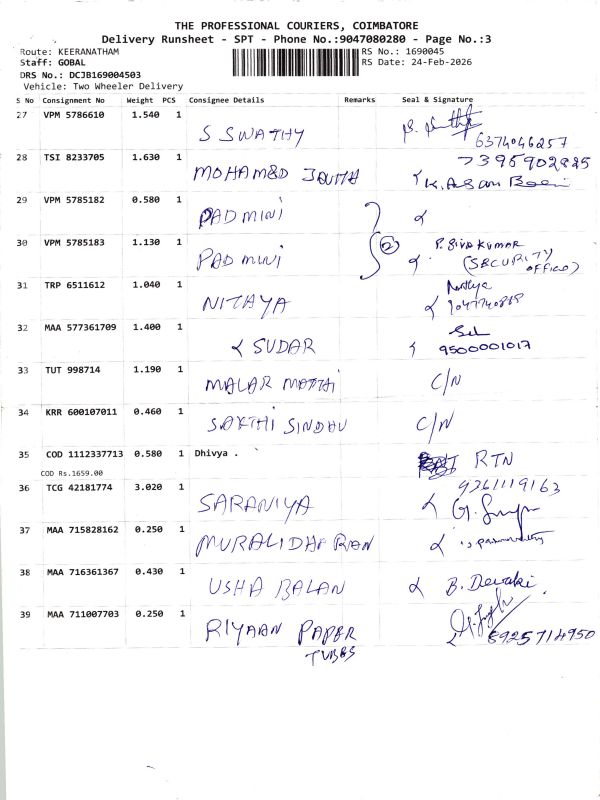 THE PROFESSIONAL COURIERS, COIMBATORE
Delivery Runsheet - SPT - Phone No.:9047080280 - Page No.:3
Route: KEERANATHAM RS No.: 1690045
Staff: GOBAL RS Date: 24-Feb-2026
DRS No.: DCJB169004503
Vehicle: Two Wheeler Delivery
S No Consignment No Weight PCS Consignee Details Remarks Seal & Signature
27 VPM 5786610 1.540 1 S SWATHY
6374046257
28 TSI 8233705 1.630 1 MOHAMED 7395902825
29 VPM 5785182 0.580 1 PADMINI
30 VPM 5785183 1.130 1 PADMINI 2 P. SIVAKUMAR
(SECURITY
OFFICE)
31 TRP 6511612 1.040 1 NITHYA Nithya
32 MAA 577361709 1.400 1 SUDAR
9500001017
33 TUT 998714 1.190 1 MALAR C/N
34 KRR 600107011 0.460 1 SAKTHI SINDHU C/N
35 COD 1112337713 0.580 1 Dhivya . RTN
COD Rs.1659.00
36 TCG 42181774 3.020 1 SARANIYA 9261119163
37 MAA 715828162 0.250 1 MURALIDHARAN
38 MAA 716361367 0.430 1 USHA BALAN B. Devaki
39 MAA 711007703 0.250 1 RIYAAN PAPER 8925714950
TUBES